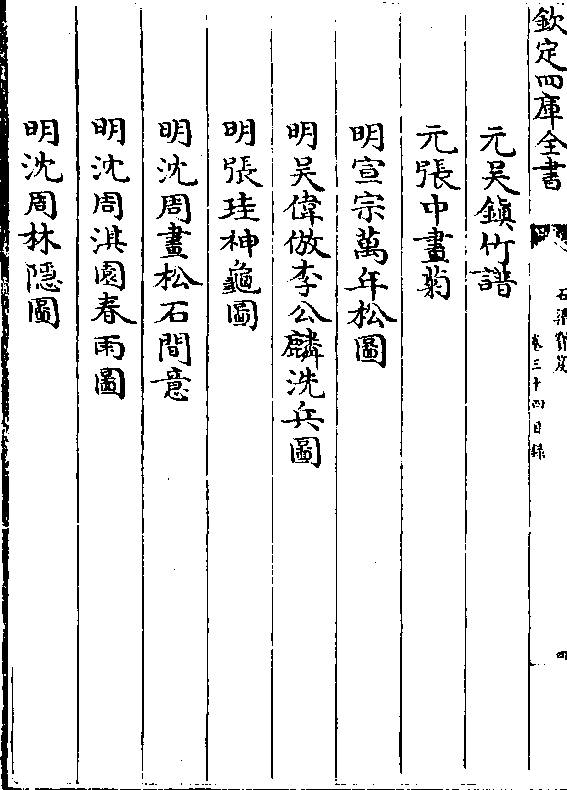 欽定四庫全書
石渠寶笈
卷三十四目録
四
元吳鎮竹譜
元張中畫菊
明宣宗萬年松圖
明吳偉倣李公麟洗兵圖
明張珪神龜圖
明沈周畫松石間意
明沈周淇園春雨圖
明沈周林隱圖